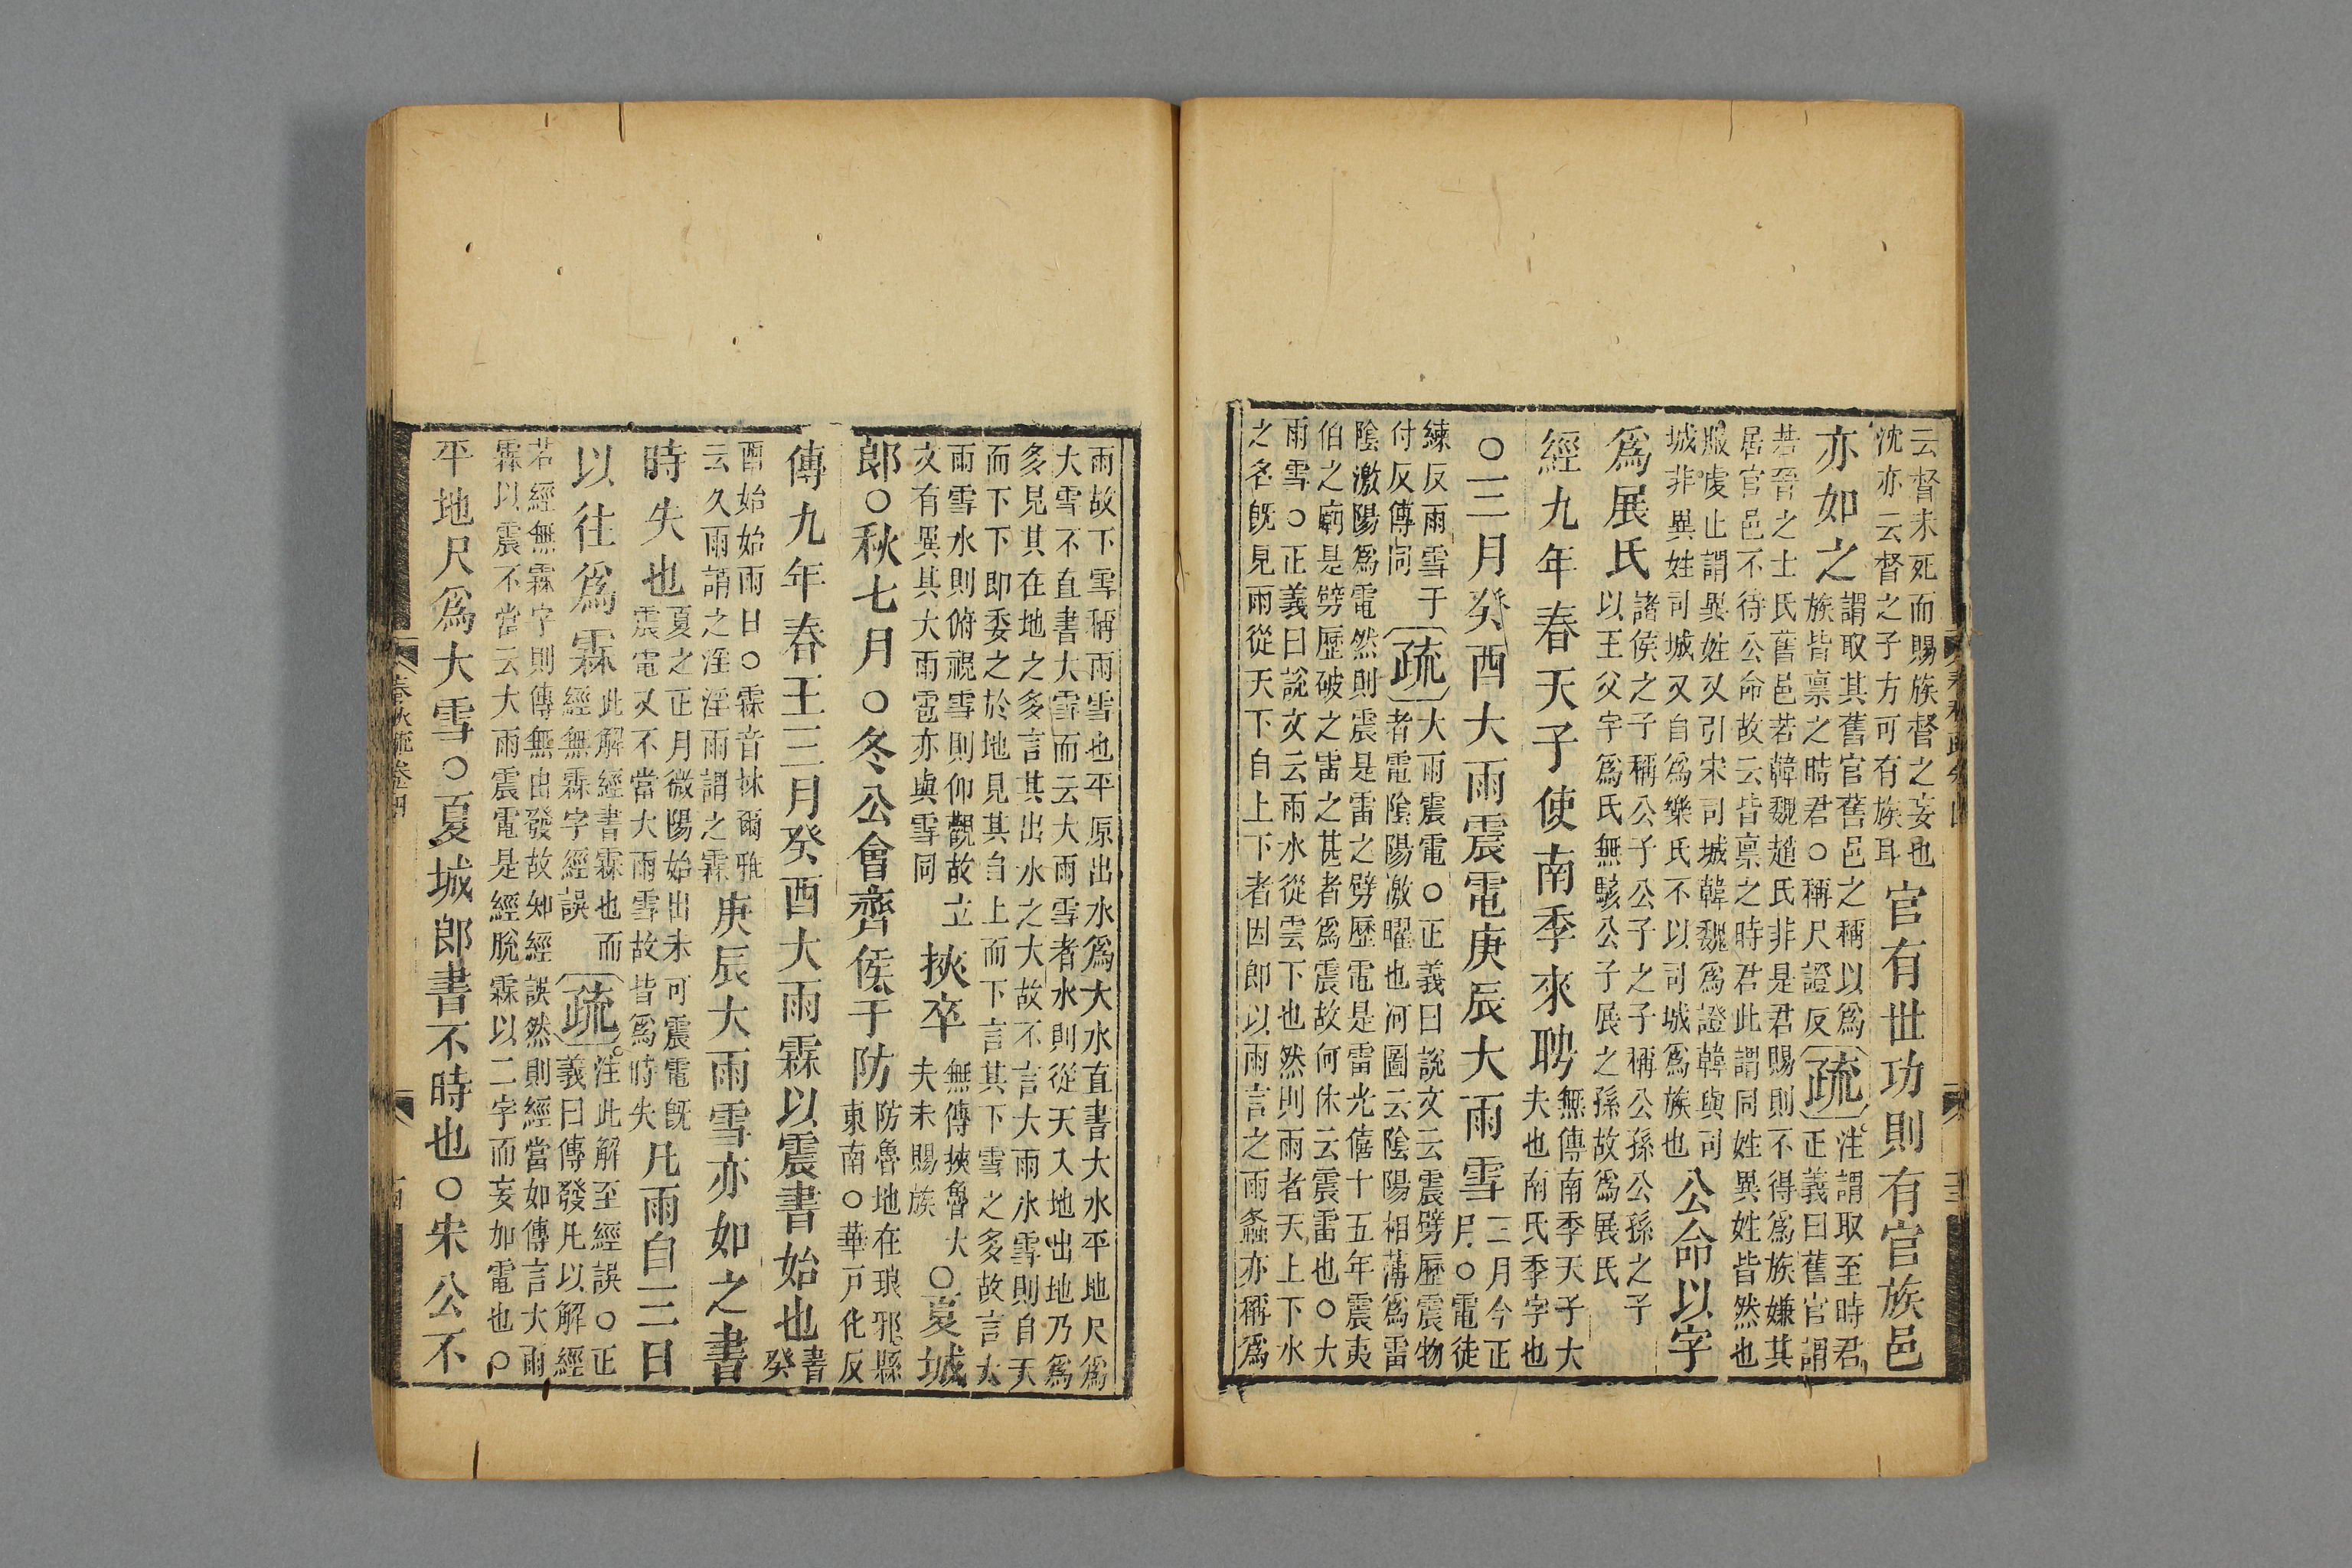 云督未死而賜族督之妄也
沈亦云督之子方可有族耳
官有世功則有官族邑
亦如之
謂取其舊官舊邑之稱以爲
族皆禀之時君○稱尺證反
疏
注謂取至時君
正義曰舊官謂
若晉之士氏舊邑若韓魏趙氏非是君賜則不得爲族嫌其
居官邑不待公命故云皆禀之時君此謂同姓異姓皆然也
服虔止謂異姓又引宋司城韓魏爲證韓與司
城非異姓司城又自爲樂氏不以司城爲族也
公命以字
爲展氏
諸侯之子稱公子公子之子稱公孫公孫之子
以王父字爲氏無駭公子展之孫故爲展氏
經九年春天子使南季來聘
無傳南季天子大
夫也南氏季字也
○三月癸酉大雨震電庚辰大雨雪
三月今正
月○電徒
練反雨雪于
付反傳同
疏
大雨震電○正義曰說文云震劈歷震物
者電陰陽激曜也河圖云陰陽相薄爲雷
陰激陽爲電然則震是雷之劈歷電是雷光僖十五年震夷
伯之廟是劈歷破之雷之甚者爲震故何休云震雷也○大
雨雪○正義曰說文云雨水從雲下也然則雨者天上下水
之名既見雨從天下自上下者因即以雨言之雨螽亦稱爲
雨故下雪稱雨雪也平原出水爲大水直書大水平地尺爲
大雪不直書大雪而云大雨雪者水則從天入地出地乃爲
多見其在地之多言其出水之大故不言大雨水雪則自天
而下下即委之於地見其自上而下言其下雪之多故言大
雨雪水則俯視雪則仰觀故立
文有異其大雨雹亦與雪同
挾卒
無傳挾魯大
夫未賜族
○夏城
郎○秋七月○冬公會齊侯于防
防魯地在琅邪縣
東南○華戸化反
傳九年春王三月癸酉大雨霖以震書始也
書癸
酉始始雨日○霖音林爾雅
云久雨謂之淫淫雨謂之霖
庚辰大雨雪亦如之書
時失也
夏之正月微陽始出未可震電既
震電又不當大雨雪故皆爲時失
凡雨自三日
以往爲霖
此解經書霖也而
經無霖字經誤
疏
注此解至經誤○正
義曰傳發凡以解經
若經無霖字則傳無由發故知經誤然則經當如傳言大雨
霖以震不當云大雨震電是經脫霖以二字而妄加電也○
平地尺爲大雪○夏城郎書不時也○宋公不
春秋疏卷四